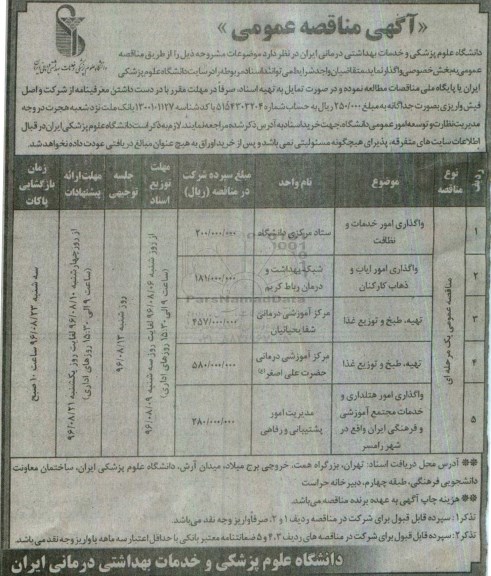 «آگهی مناقصه عمومی»
دانشگاه علوم پزشکی و خدمات بهداشتی درمانی ایران
دانشگاه علوم پزشکی و خدمات بهداشتی درمانی ایران در نظر دارد موضوعات مشروحه ذیل را از طریق مناقصه
عمومی به بخش خصوصی واگذار نماید. متقاضیان واجد شرایط می توانند اسناد مربوطه را در سایت دانشگاه علوم پزشکی
ایران یا پایگاه ملی مناقصات مطالعه نموده و در صورت تمایل به تهیه اسناد، صرفاً در مهلت مقرر با در دست داشتن معرفینامه از شرکت و اصل
فیش واریزی بصورت جداگانه به مبلغ ۲۵۰/۰۰۰ ریال به حساب شماره ۵۱۵۴۳۰۳۲۰۴ با کد شناسه ۱۳۰۰۱۰۱۱۲۷ بانک ملت نزد شعبه هجرت در وجه
مدیریت نظارت و توسعه امور عمومی دانشگاه جهت خرید اسناد به آدرس ذکر شده مراجعه نمایند. لازم به ذکر است دانشگاه علوم پزشکی ایران در قبال
اطلاعات سایت های متفرقه، پذیرای هیچگونه مسئولیتی نمی باشد و پس از خرید اوراق به هیچ عنوان مبالغ دریافتی عودت داده نخواهد شد.
ردیف
نوع مناقصه
موضوع
نام واحد
مبلغ سپرده شرکت در مناقصه (ریال)
مهلت توزیع اسناد
جلسه توجیهی
مهلت ارائه پیشنهادات
زمان بازگشایی پاکات
۱
واگذاری امور خدمات و نظافت
ستاد مرکزی دانشگاه
۲۰۰/۰۰۰/۰۰۰
۲
واگذاری امور ایاب و ذهاب کارکنان
شبکه بهداشت و درمان رباط کریم
۱۸۱/۰۰۰/۰۰۰
۳
تهیه، طبخ و توزیع غذا
مرکز آموزشی درمانی شفا یحیائیان
۴۵۷/۰۰۰/۰۰۰
۴
تهیه، طبخ و توزیع غذا
مرکز آموزشی درمانی حضرت علی اصغر (ع)
۵۸۰/۰۰۰/۰۰۰
۵
واگذاری امور هتلداری و خدمات مجتمع آموزشی و فرهنگی ایران واقع در شهر رامسر
مدیریت امور پشتیبانی و رفاهی
۲۸۰/۰۰۰/۰۰۰
مناقصه عمومی یک مرحله ای
از روز شنبه ۹۶/۰۸/۰۶ لغایت روز سه شنبه ۹۶/۰۸/۰۹
(ساعت ۹ الی ۱۵:۳۰ روزهای اداری)
روز شنبه ۹۶/۰۸/۱۳
از روز چهارشنبه ۹۶/۰۸/۱۰ لغایت روز یکشنبه ۹۶/۰۸/۲۱
(ساعت ۹ الی ۱۵:۳۰ روزهای اداری)
سه شنبه ۹۶/۰۸/۲۳ ساعت ۱۰ صبح
ParsNamadData
** آدرس محل دریافت اسناد: تهران، بزرگراه همت، خروجی برج میلاد، میدان آرش، دانشگاه علوم پزشکی ایران، ساختمان معاونت
دانشجویی فرهنگی، طبقه چهارم، دبیرخانه حراست
** هزینه چاپ آگهی به عهده برنده مناقصه می باشد.
تذکر۱: سپرده قابل قبول برای شرکت در مناقصه ردیف ۱ و ۲، صرفاً واریز وجه نقد می باشد.
تذکر۲: سپرده قابل قبول برای شرکت در مناقصه های ردیف ۳، ۴ و ۵ ضمانتنامه معتبر بانکی با حداقل اعتبار سه ماهه یا واریز وجه نقد می باشد.
دانشگاه علوم پزشکی و خدمات بهداشتی درمانی ایران